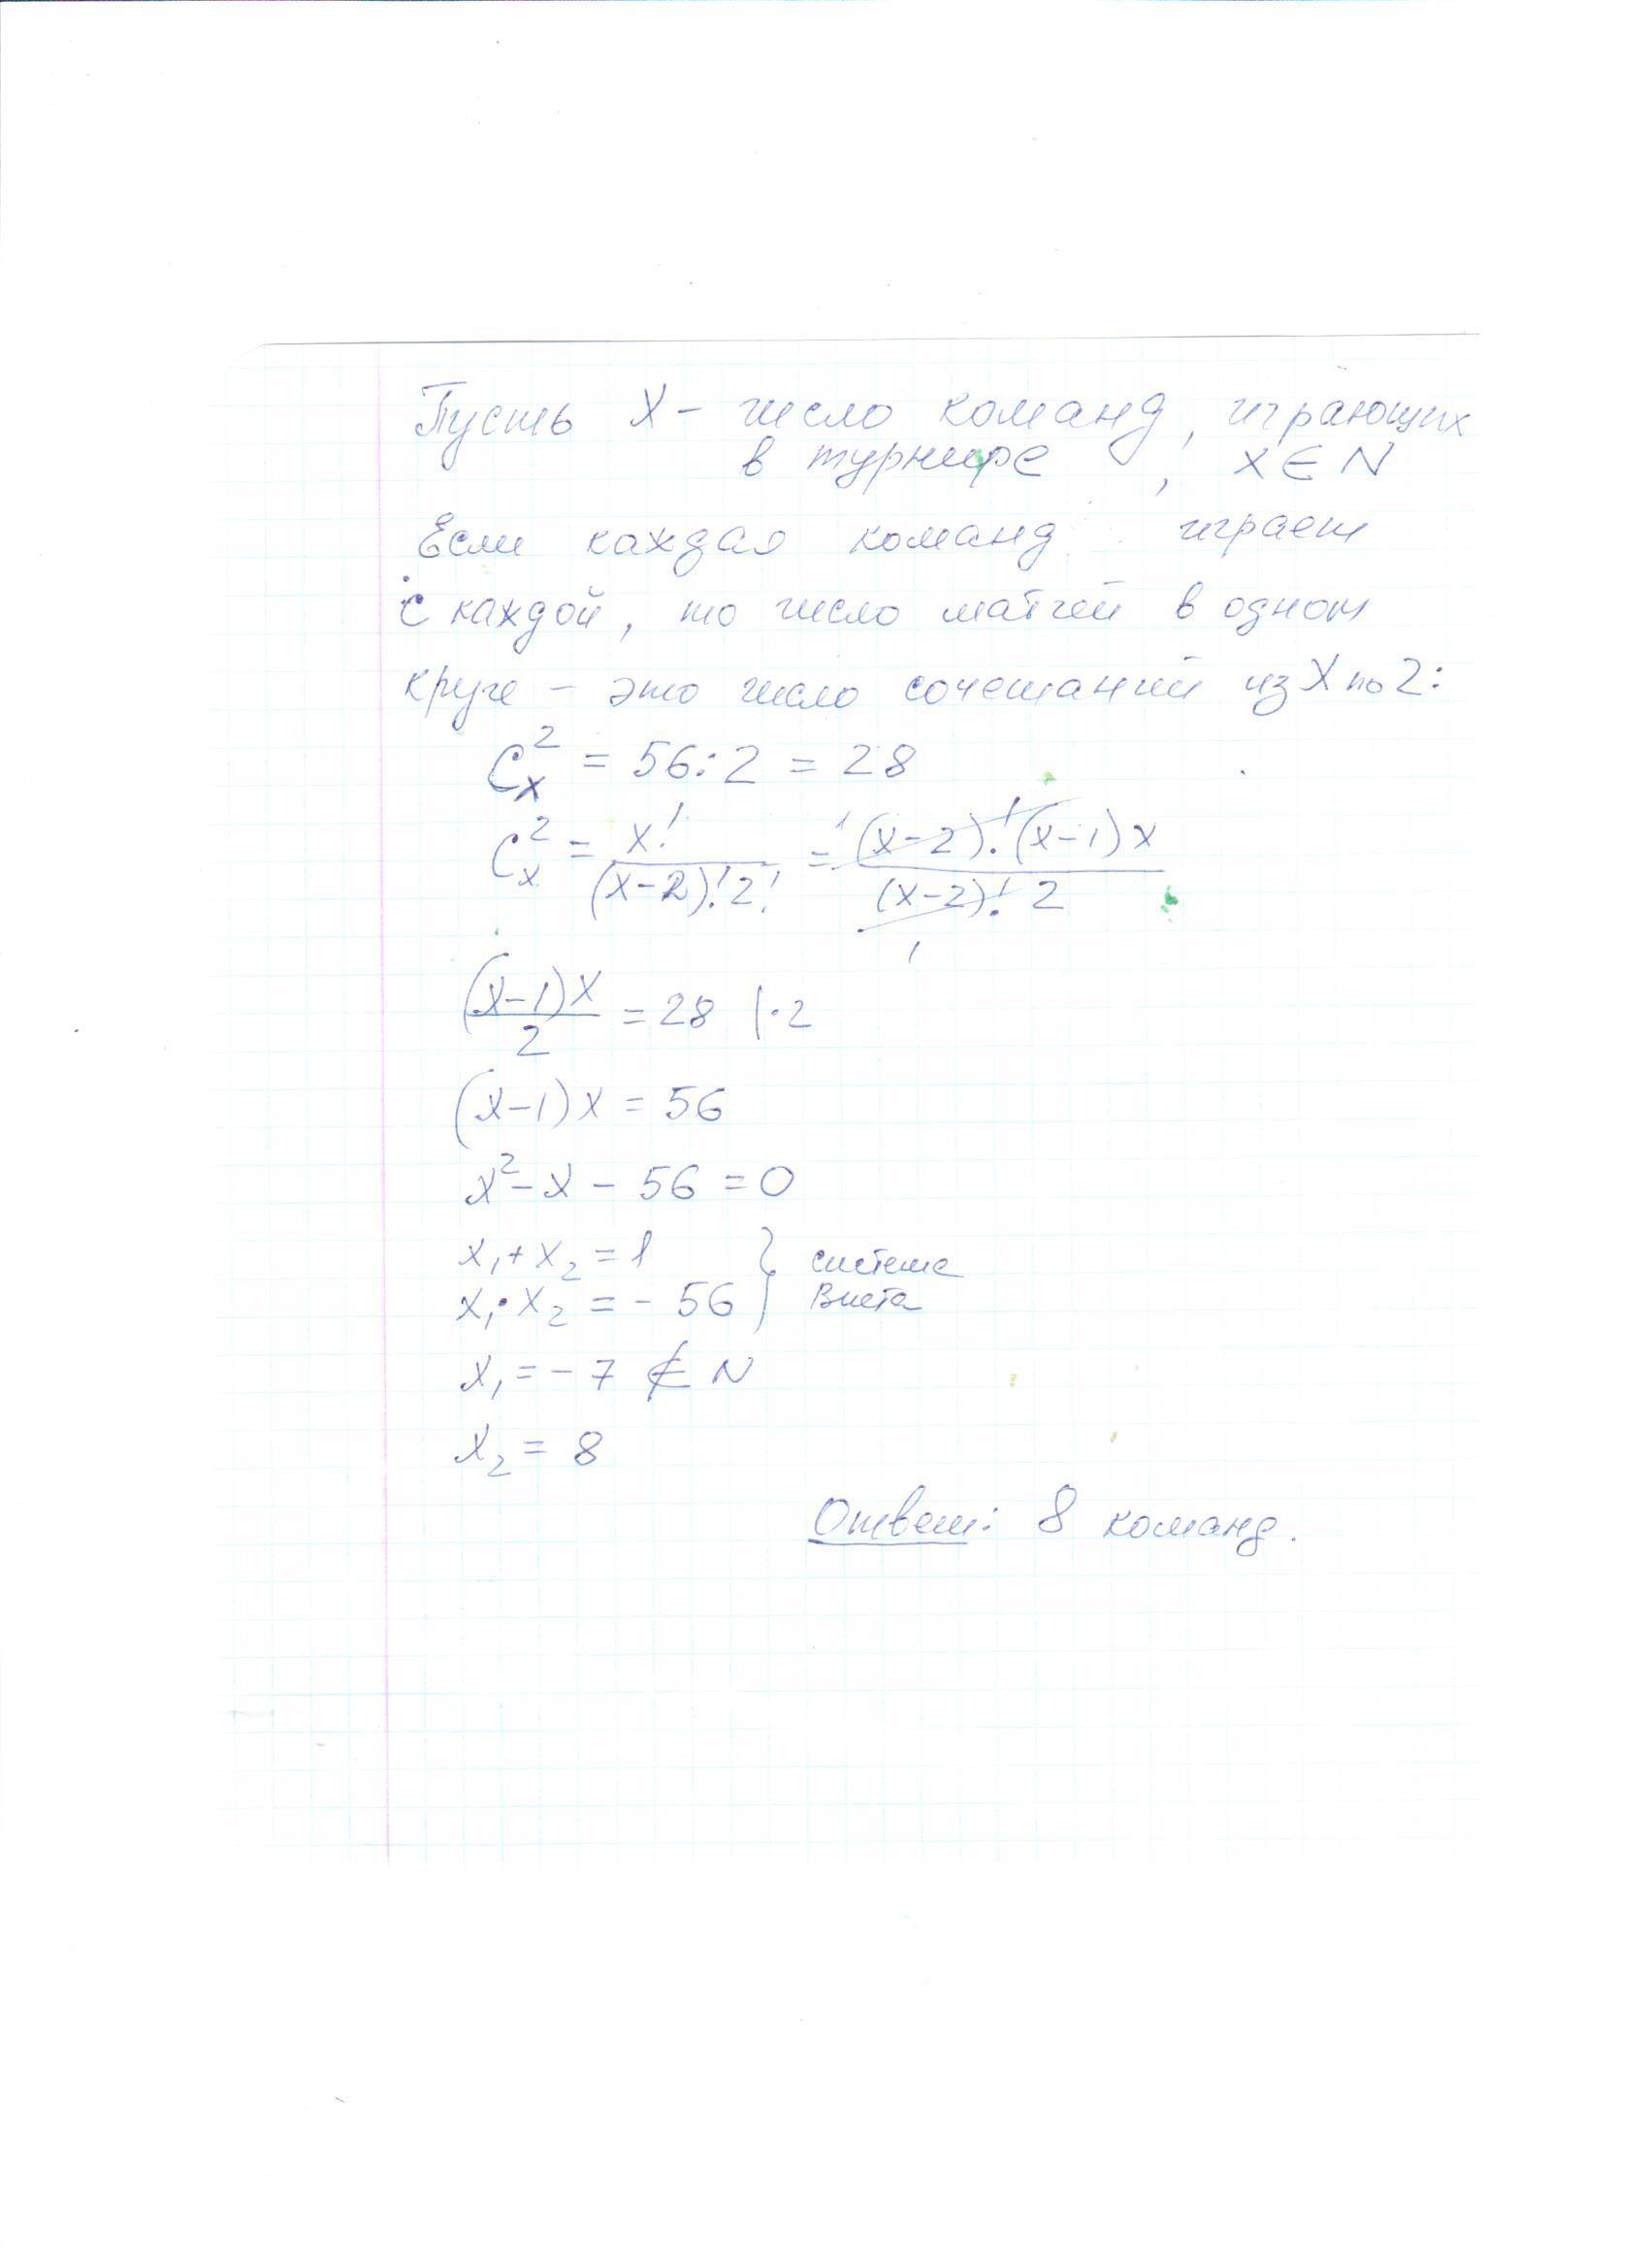 Пусть X – число команд, играющих
в турнире, x ∈ N
Если каждая команд играет
с каждой, то число матчей в одном
круге – это число сочетаний из X по 2:
C_x^2 = 56:2 = 28
C_x^2 = x!/((x-2)!2!) = (x-2)!(x-1)x/((x-2)!2)
(x-1)x/2 = 28 |·2
(x-1)x = 56
x² - x - 56 = 0
x₁ + x₂ = 1 } система
x₁·x₂ = -56 } Виета
x₁ = -7 ∉ N
x₂ = 8
Ответ: 8 команд.